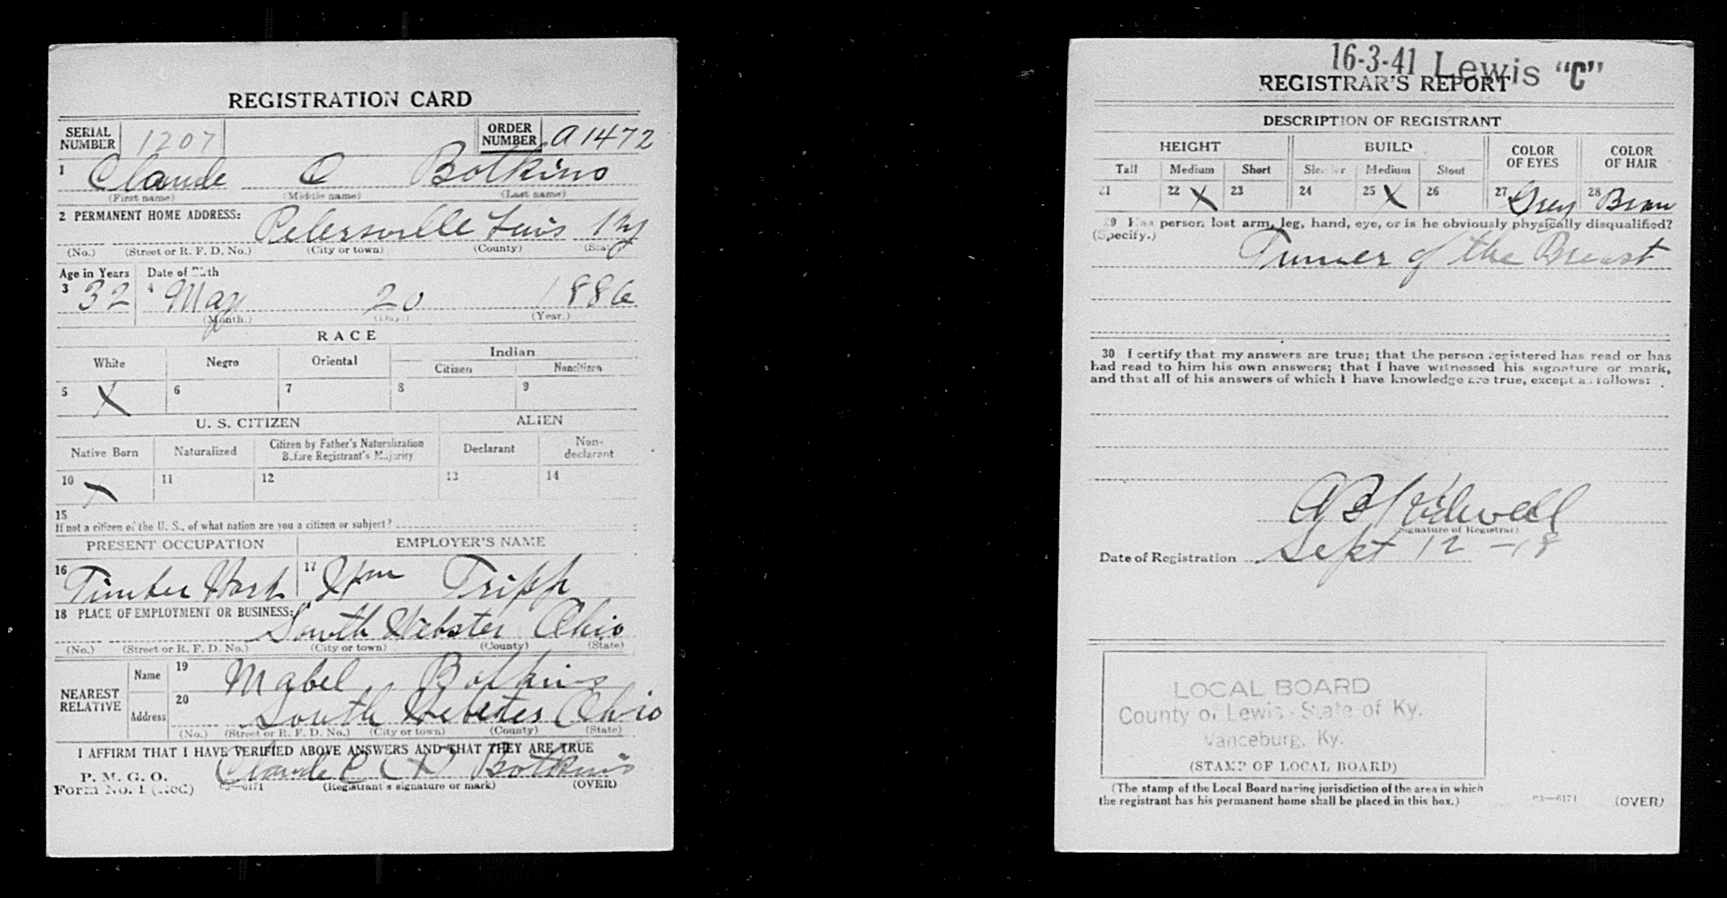 REGISTRATION CARD
SERIAL NUMBER 1207 ORDER NUMBER A1472
1 Claude O Botkins
(First name) (Middle name) (Last name)
2 PERMANENT HOME ADDRESS: Petersville Luis Ky
(No.) (Street or R. F. D. No.) (City or town) (County) (State)
Age in Years Date of Birth
3 32 4 May 20 1886
(Month.) (Day.) (Year.)
RACE
White Negro Oriental Indian
Citizen Noncitizen
5 X 6 7 8 9
U. S. CITIZEN ALIEN
Native Born Naturalized Citizen by Father's Naturalization Before Registrant's Majority Declarant Non-declarant
10 X 11 12 13 14
15
If not a citizen of the U. S., of what nation are you a citizen or subject?
PRESENT OCCUPATION EMPLOYER'S NAME
16 Timber Work 17 Wm Tripp
18 PLACE OF EMPLOYMENT OR BUSINESS:
South Webster Ohio
(No.) (Street or R. F. D. No.) (City or town) (County) (State)
NEAREST RELATIVE Name 19 Mabel Botkins
Address 20 South Webster Ohio
(No.) (Street or R. F. D. No.) (City or town) (County) (State)
I AFFIRM THAT I HAVE VERIFIED ABOVE ANSWERS AND THAT THEY ARE TRUE
P. M. G. O.
Form No. 1 (Red) 03—6171 Claude Botkins
(Registrant's signature or mark) (OVER)
16-3-41 Lewis "C"
REGISTRAR'S REPORT
DESCRIPTION OF REGISTRANT
HEIGHT BUILD COLOR OF EYES COLOR OF HAIR
Tall Medium Short Slender Medium Stout
21 22 X 23 24 25 X 26 27 Grey 28 Brown
29 Has person lost arm, leg, hand, eye, or is he obviously physically disqualified?
(Specify.) Tumer of the Breast
30 I certify that my answers are true; that the person registered has read or has
had read to him his own answers; that I have witnessed his signature or mark,
and that all of his answers of which I have knowledge are true, except as follows:
Kidwell
(Signature of Registrar)
Date of Registration Sept 12 - 18
LOCAL BOARD
County of Lewis - State of Ky.
Vanceburg, Ky.
(STAMP OF LOCAL BOARD)
(The stamp of the Local Board having jurisdiction of the area in which
the registrant has his permanent home shall be placed in this box.)
03—6171 (OVER)